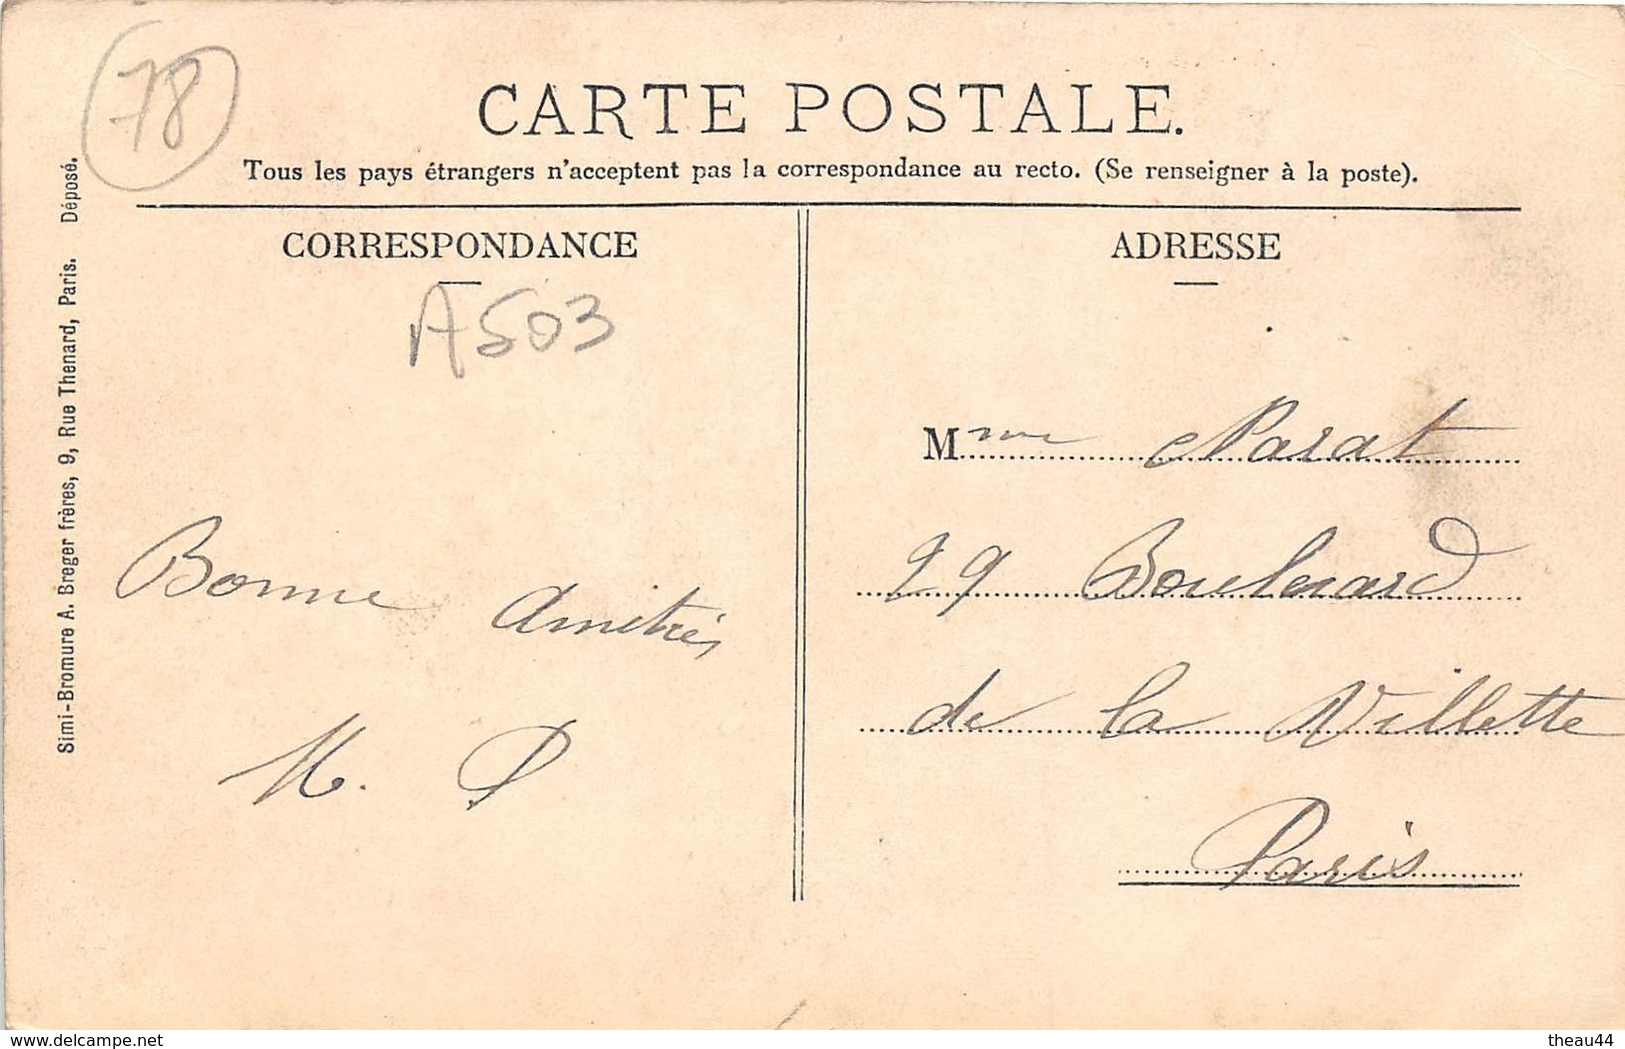 78
CARTE POSTALE.
Tous les pays étrangers n'acceptent pas la correspondance au recto. (Se renseigner à la poste).
CORRESPONDANCE
A503
Bonne Amitiés
M. P
ADRESSE
Mme Narat
29 Boulevard
de la Villette
Paris
Simi-Bromure A. Breger frères, 9, Rue Thenard, Paris. Déposé.
www.delcampe.net
theau44